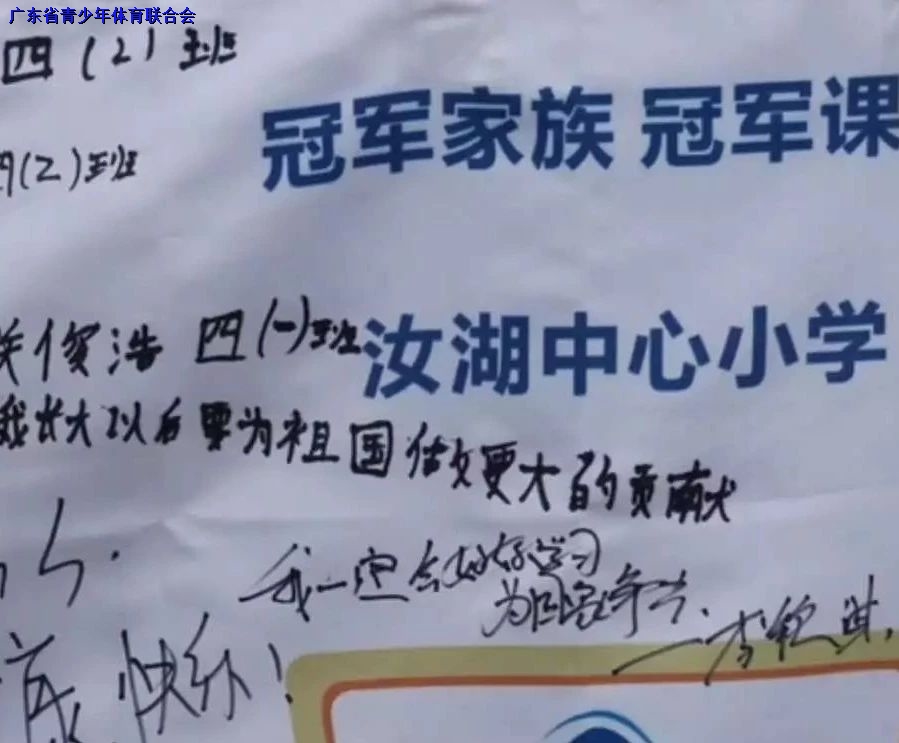 广东省青少年体育联合会
四(2)班
冠军家族 冠军课
四(2)班
关俊浩 四(一)班
汝湖中心小学
我长大以后要为祖国做更大的贡献
我一定会好好学习
为国家争光.
一李钦淇.
快乐!